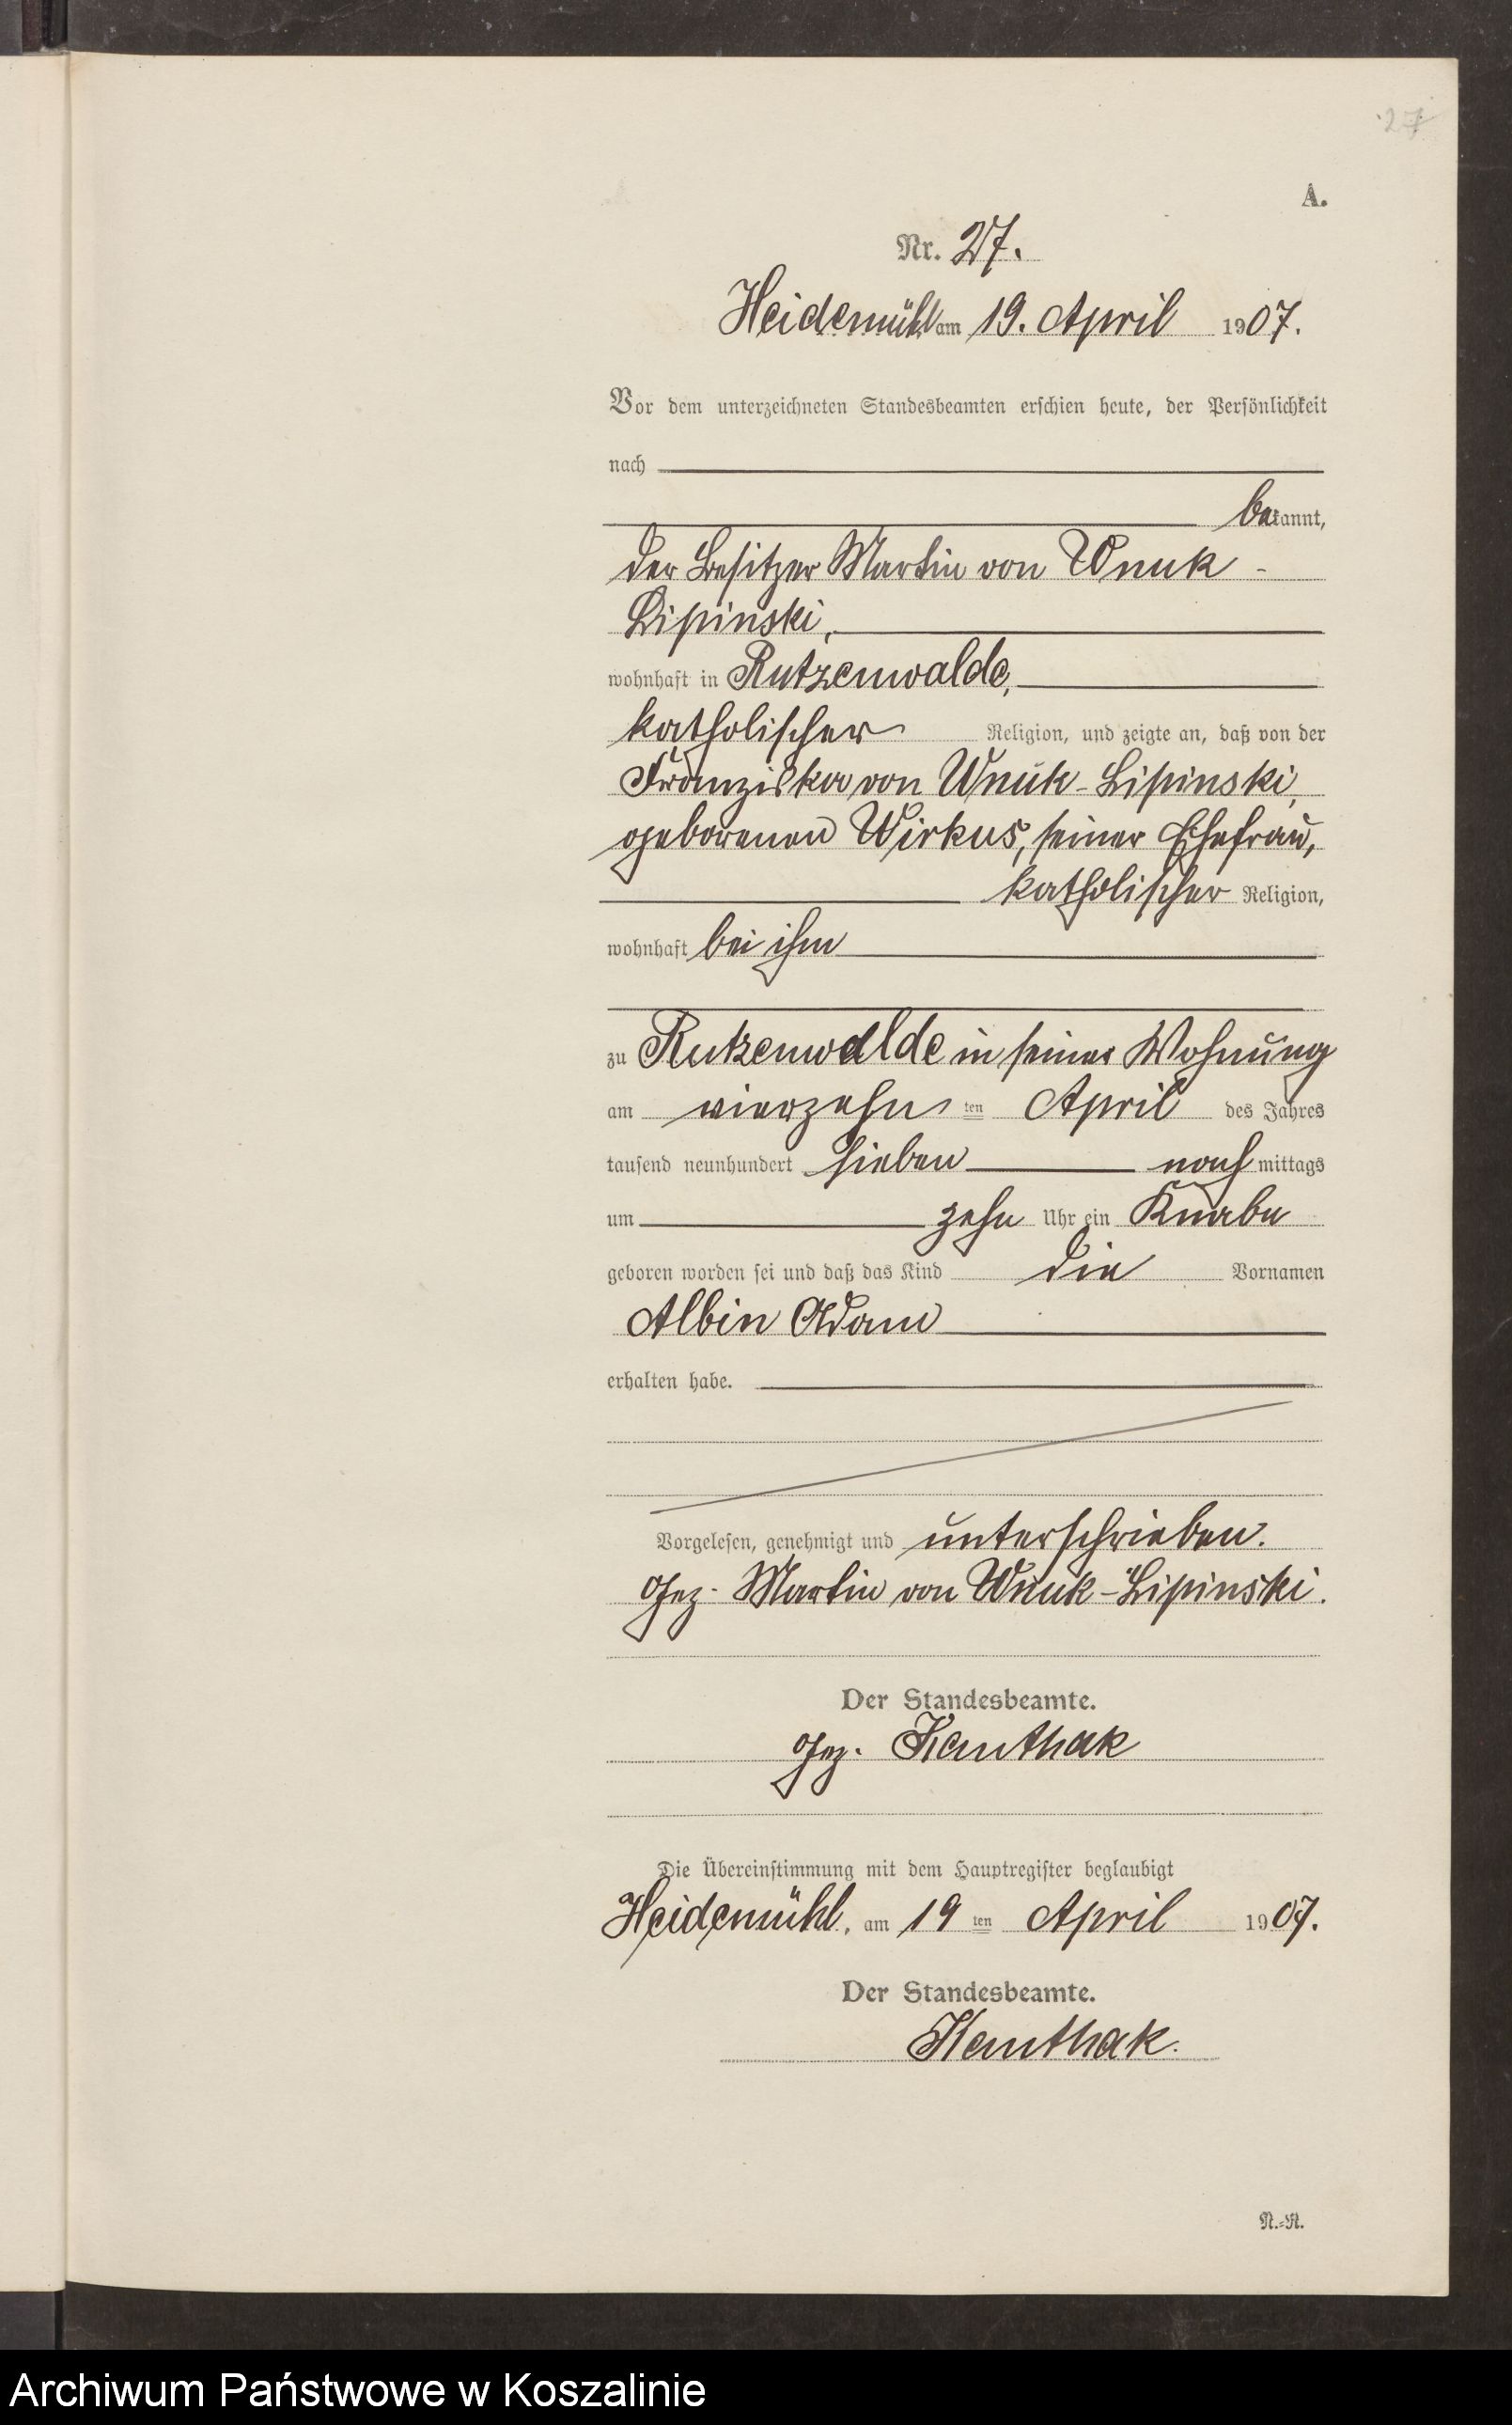 27
A.
Nr. 27.
Heidemühl am 19. April 1907.
Vor dem unterzeichneten Standesbeamten erschien heute, der Persönlichkeit
nach
bekannt,
der Besitzer Martin von Wnuk-
Lipinski,
wohnhaft in Rutzenwalde,
katholischer Religion, und zeigte an, daß von der
Franziska von Wnuk-Lipinski,
geborenen Wirkus, seiner Ehefrau,
katholischer Religion,
wohnhaft bei ihm
zu Rutzenwalde in seiner Wohnung
am vierzehnten April des Jahres
tausend neunhundert sieben nachmittags
um zehn Uhr ein Knabe
geboren worden sei und daß das Kind die Vornamen
Albin Adam
erhalten habe.
Vorgelesen, genehmigt und unterschrieben.
Gez. Martin von Wnuk-Lipinski.
Der Standesbeamte.
Gez. Kauthak
Die Übereinstimmung mit dem Hauptregister beglaubigt
Heidemühl, am 19ten April 1907.
Der Standesbeamte.
Kauthak.
N.-R.
Archiwum Państwowe w Koszalinie